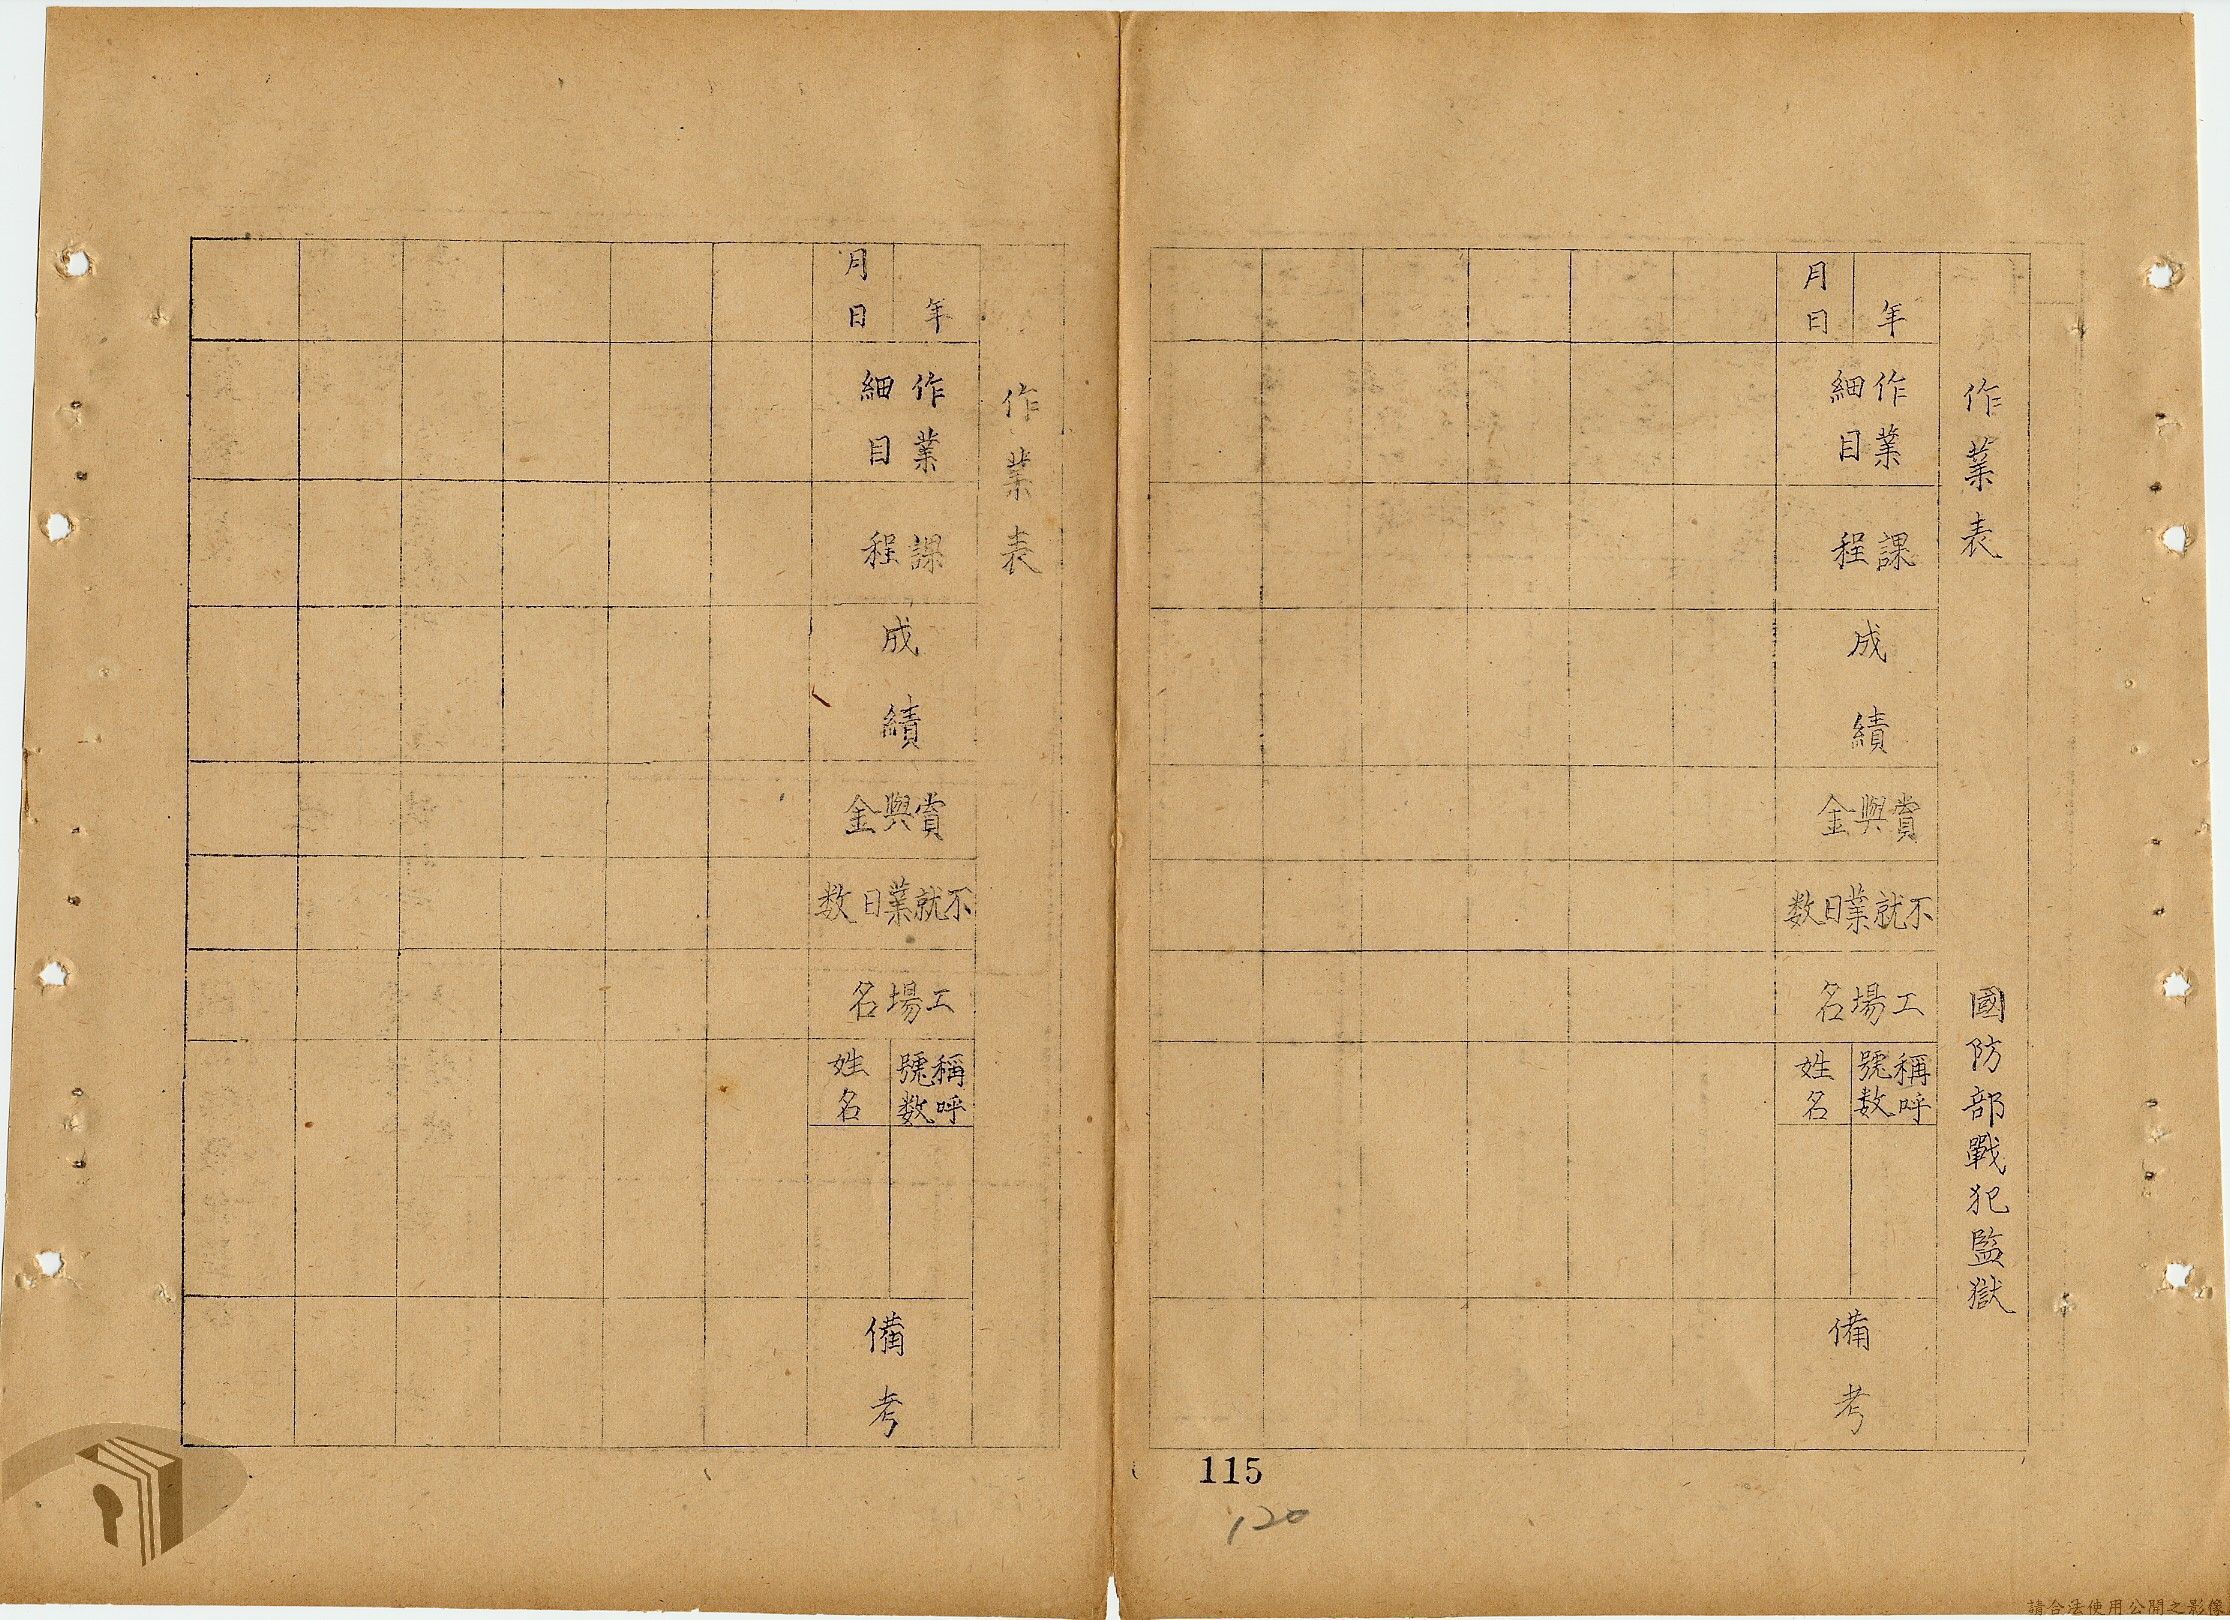 作業表 國防部戰犯監獄
年 月 日
作業細目
課程
成績
賞與金
不就業日数
工場名
稱呼號数
姓名
備考
115
120
作業表
年 月 日
作業細目
課程
成績
賞與金
不就業日数
工場名
稱呼號数
姓名
備考
請合法使用公開之影像